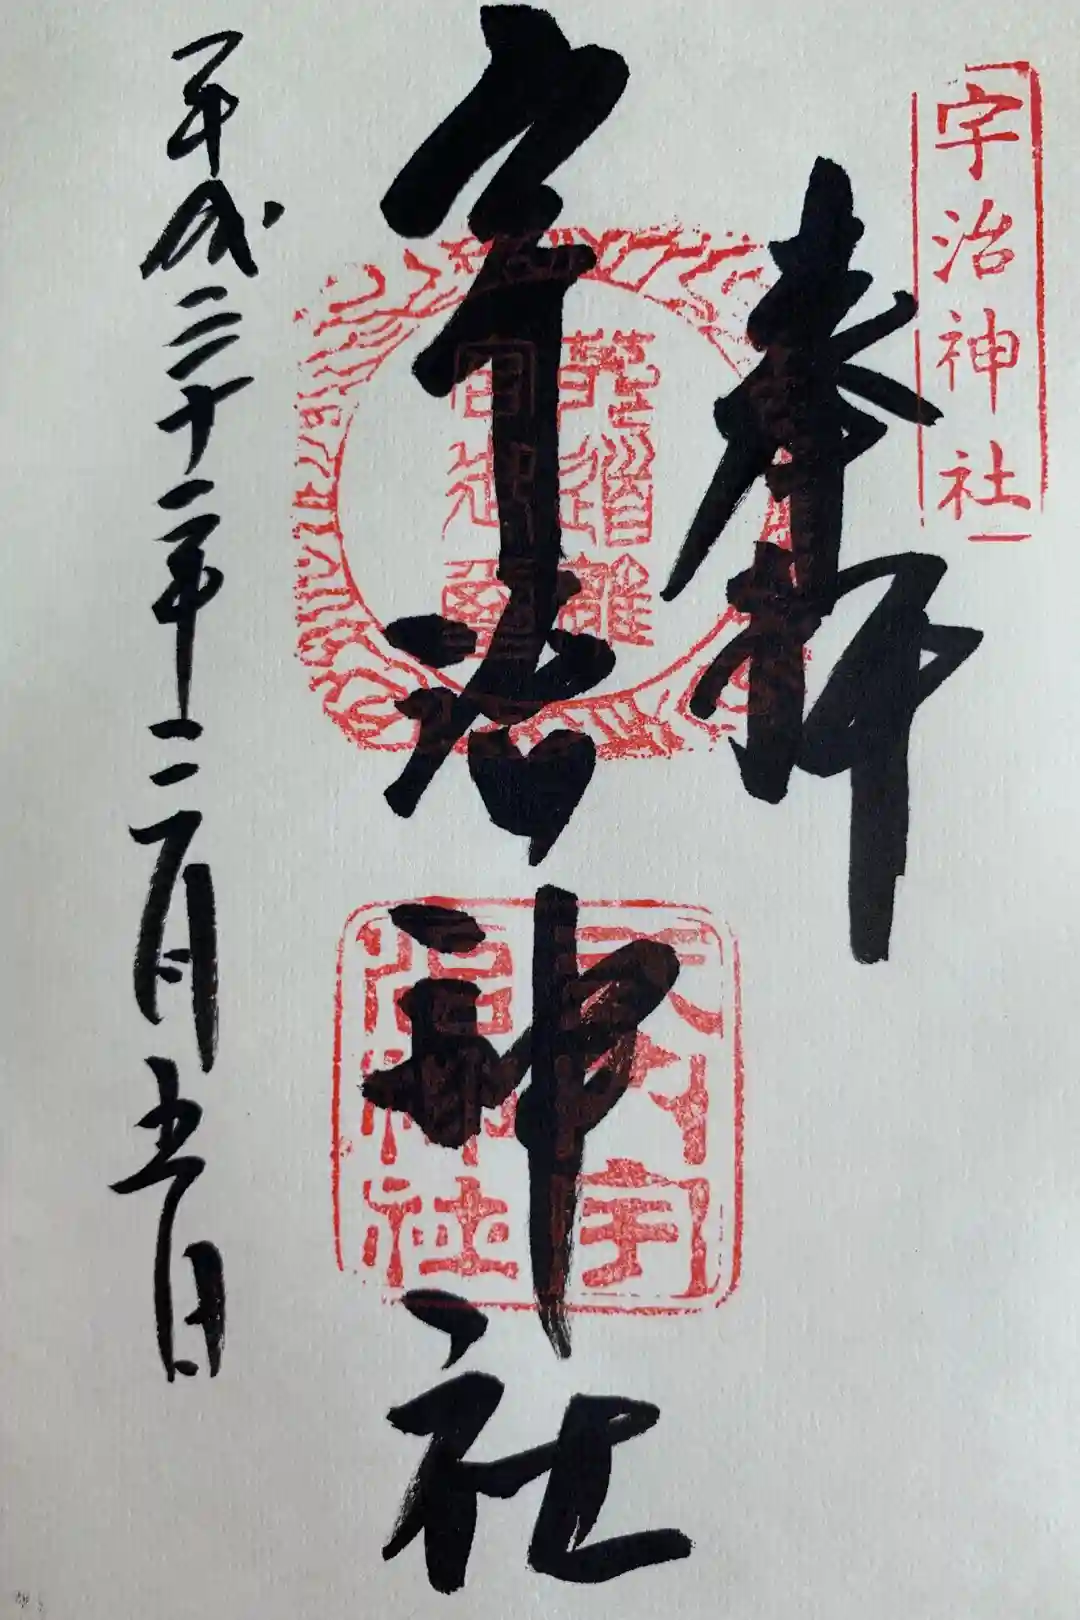 宇治神社
奉拝
宇治神社
式内宇
治神社
平成三十一年二月五日